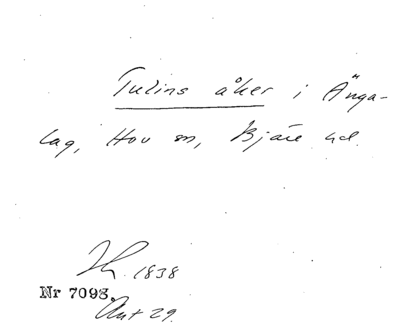 Tulins åker i Änga-
lag, Hov sn, Bjäre hd.
1838
Nr 7093.
Ant 29.